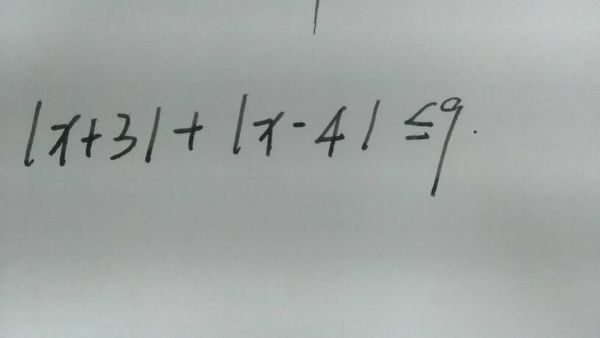 |x+3|+|x-4|≤9.